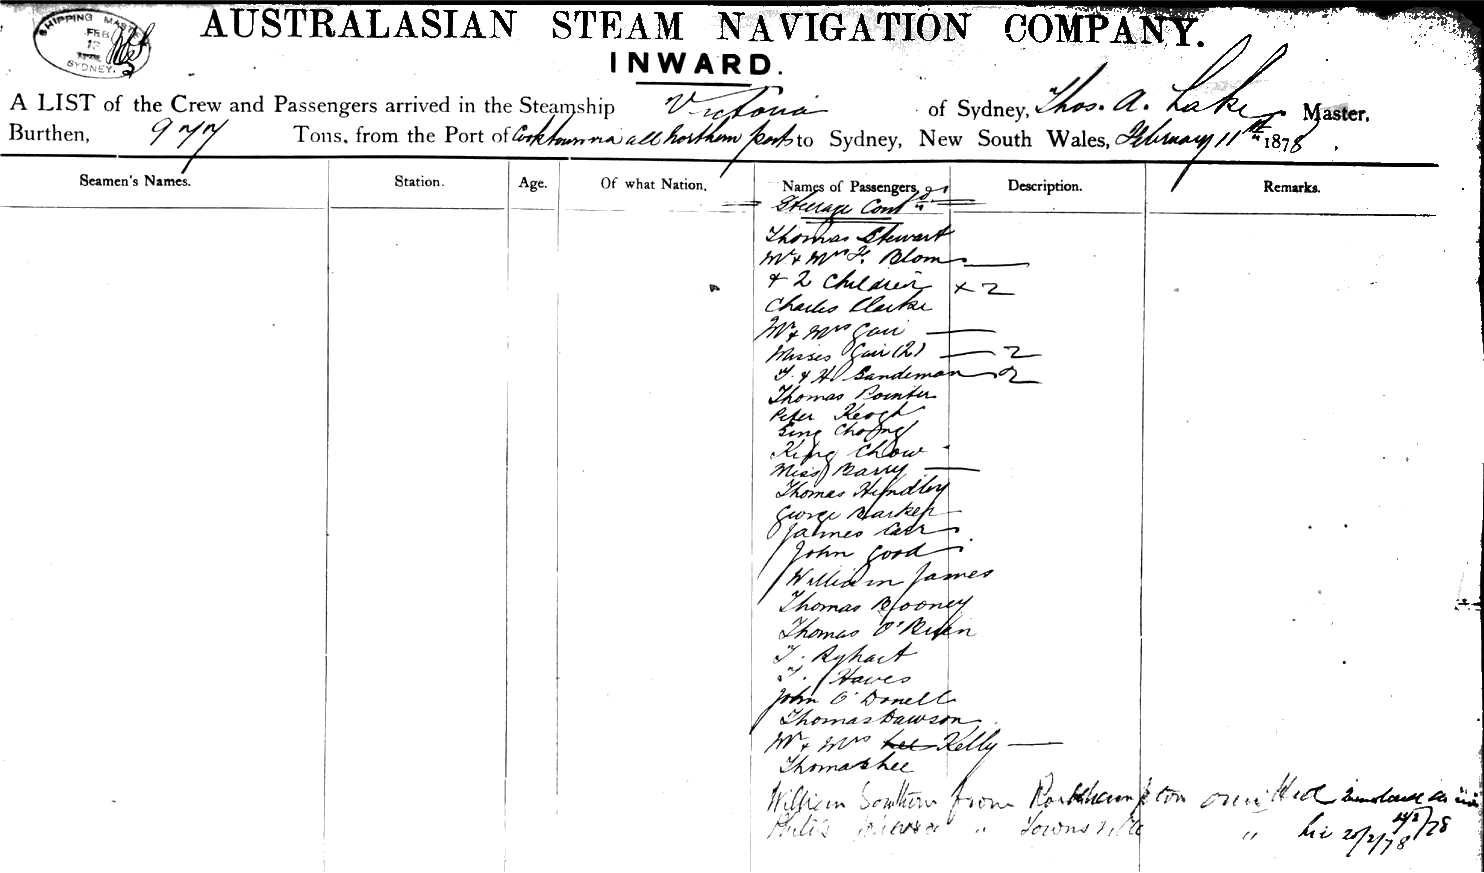 SHIPPING MASTER
FEB
SYDNEY.
AUSTRALASIAN STEAM NAVIGATION COMPANY.
INWARD.
A LIST of the Crew and Passengers arrived in the Steamship Victoria of Sydney, Thos. A. Lake Master,
Burthen, 977 Tons, from the Port of Cooktown via all Northern ports to Sydney, New South Wales, February 11th 1878.
Seamen's Names. Station. Age. Of what Nation. Names of Passengers, Description. Remarks.
Steerage Contd
Thomas Stewart
Mr & Mrs F. Blom
& 2 Children x 2
Charles Clarke
Mr & Mrs Gair
Misses Gair (2) 2
T. & H. Sandeman 2
Thomas Pointer
Peter Keogh
Eing Chong
King Chow
Miss Barry
Thomas Hindley
George Barker
James Carr
John Good
William James
Thomas Blooney
Thomas O'Brien
T. Ryhart
T. Hawes
John O'Donell
Thomas Dawson
Mr & Mrs Lee Kelly
Thomas Lee
William Southern from Rockhampton omitted
" Townsville " 20/2/78